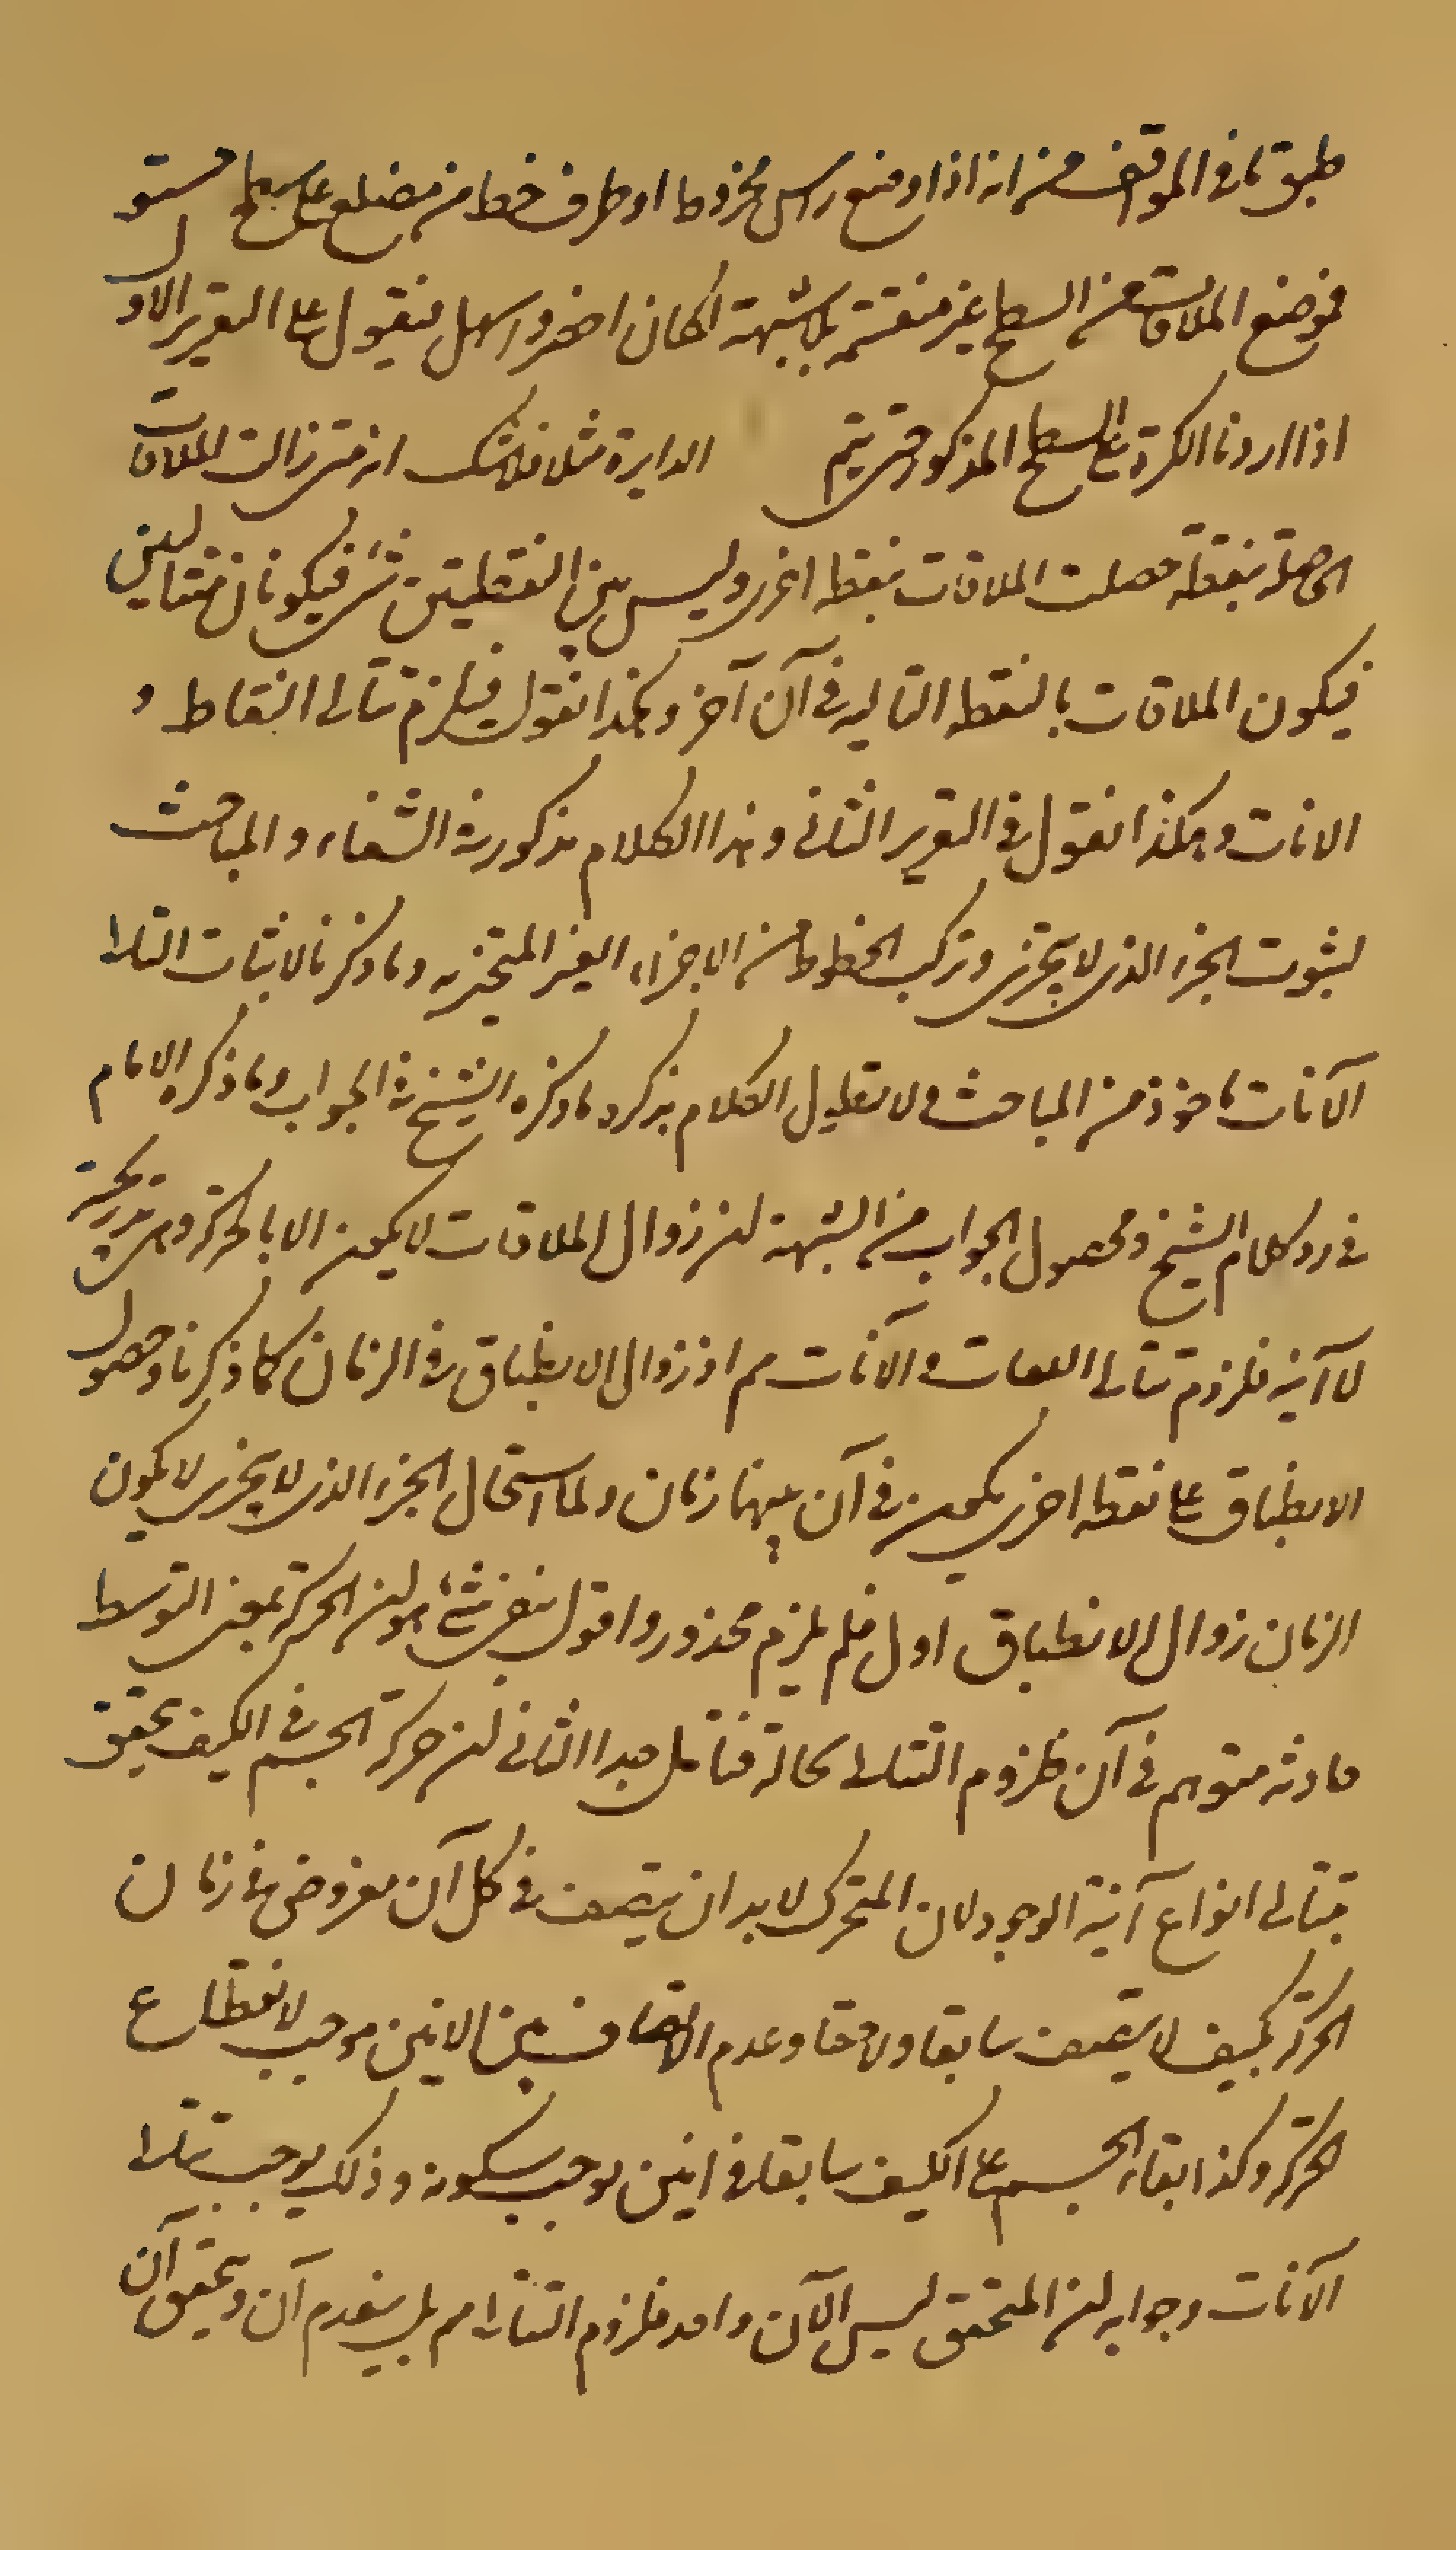 طبق ما فی المواقف من انه اذا وضع راس مخروط او طرف خط من مضلع علی سطح مستو
فموضع الملاقات من السطح غیر منقسمة بلا شبهة لکان اخصر واسهل فنقول علی التقریر الاول
اذا اردنا الکرة علی السطح المذکور حتی یتم الدایرة مثلا فلا شک انه متی زالت الملاقات
الحاصلة بنقطة حصلت الملاقات بنقطه اخری ولیس بین النقطتین شئ فیکونان متتالیتین
فیکون الملاقات بالنقطه التالیه فی آن آخر وهکذا نقول فیلزم تتالی النقاط و
الانات وهکذا نقول فی التقریر الثانی وهذا الکلام مذکور فی الشفاء والمباحث
لثبوت الجزء الذی لا یتجزی وترکب الخطوط من الاجزاء الغیر المتجزیه وما ذکرنا لاثبات التلا
الآنات ماخوذ من المباحث ولا تطویل الکلام بذکر ما ذکره الشیخ فی الجواب وما ذکره الامام
فی رد کلام الشیخ ومحصول الجواب من الشبهة لن زوال الملاقات لا یمکن الا بالحرکة وهی تدریجیة
لا آنیة فلزوم تتالی اللقات والآنات مم اذ زوال الانطباق فی الزمان کما ذکرنا وحصول
الانطباق علی نقطه اخری یکون فی آن بینهما زمان ولما استحال الجزء الذی لا یتجزی لا یکون
الزمان زوال الانطباق اول فلم یلزم محذور واقول بقی شئ هو لن الحرکة بمعنی التوسط
حادثه متوهم فی آن فلزوم التتالی بحاله فتأمل جدا الثانی لن حرکة الجسم فی الکیف یحقق
تتالی انواع آنیة الوجود لان المتحرک لا بد ان یتصف فی کل آن مفروض فی زمان
الحرکة بکیف لا یتصف سابقا ولاحقا وعدم الاتصاف بین الانین موجب لانقطاع
الحرکة وکذا بقاء الجسم علی الکیف سابقا فی انین یوجب سکونه وذلک یوجب تتلا
الآنات وجوابه لن المتحقق لیس الآن واحد فلزوم التتالی مم بل ینعدم آن ویحقق آن